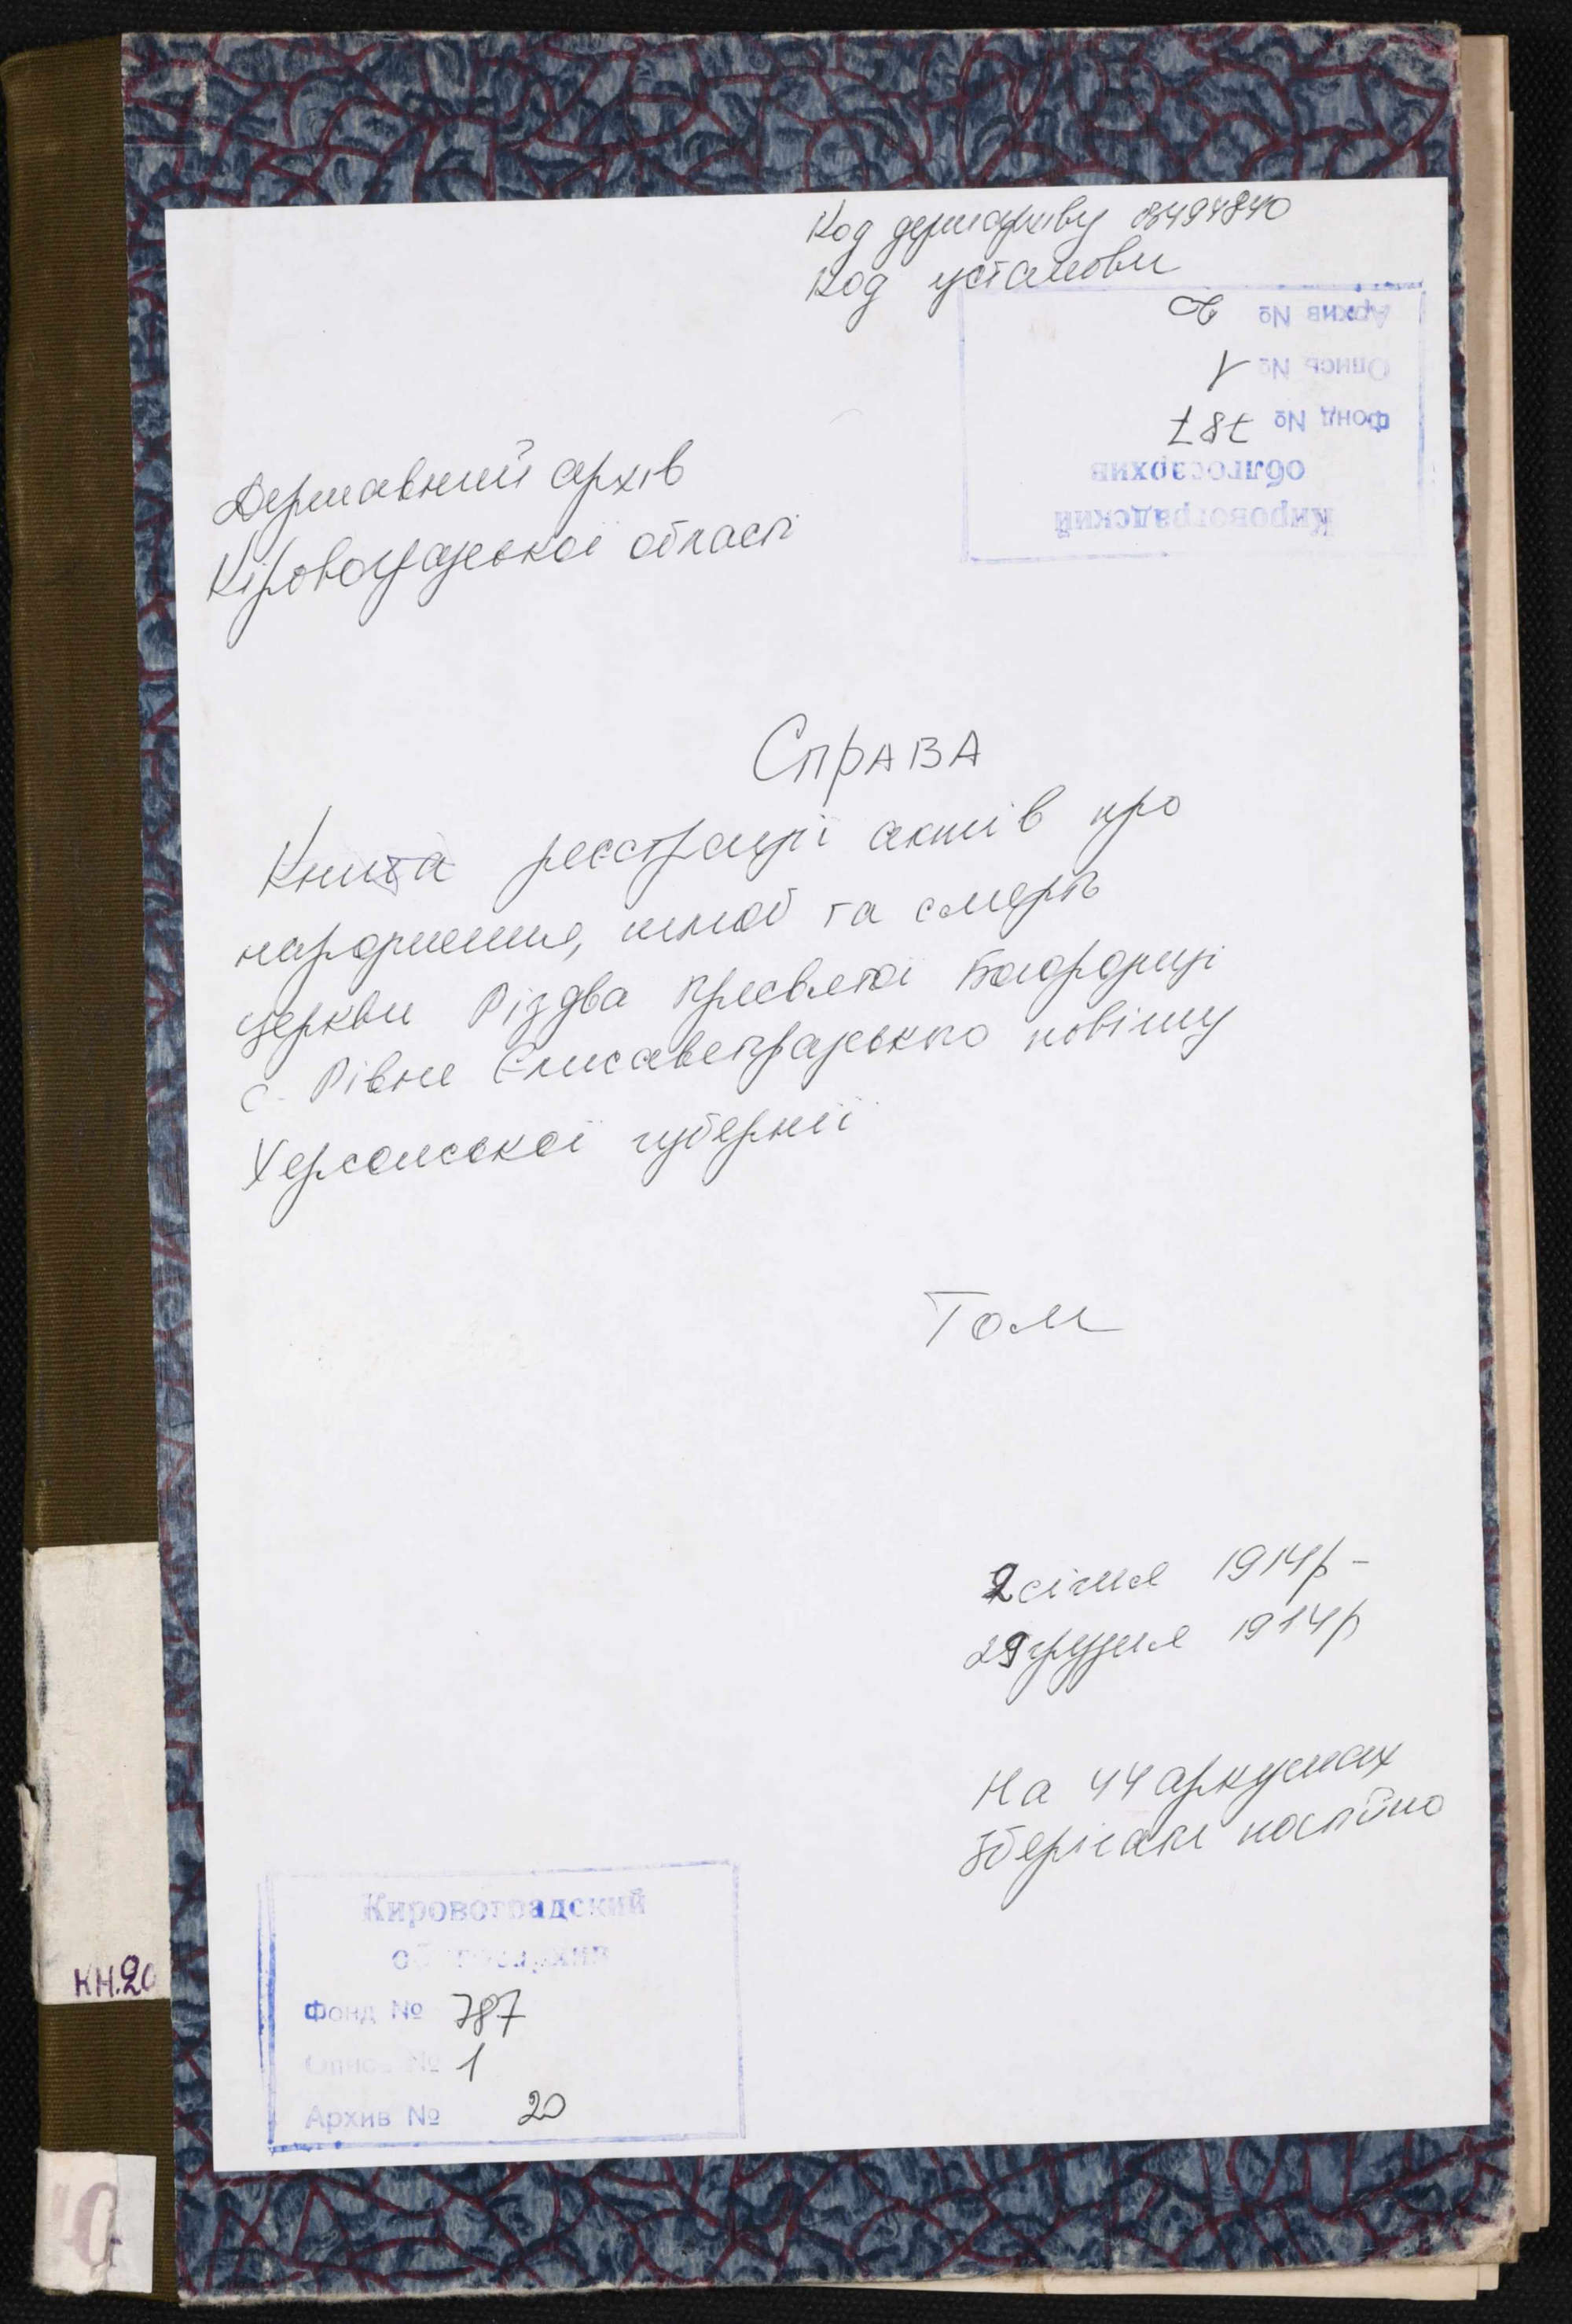 Код держархіву 03494840
Код установи
Архив № 20
Опись № 1
Фонд № 787
облгосархив
Кировоградский
Державний архів
Кіровоградської області
Справа
Книга реєстрації актів про
народження, шлюб та смерть
церкви Різдва Пресвятої Богородиці
с. Рівне Єлисаветградського повіту
Херсонської губернії
Том
2 січня 1914р –
29 грудня 1914р
На 44 аркушах
Зберігати постійно
Кировоградский
облгосархив
Фонд № 787
Опись № 1
Архив № 20
КН.20